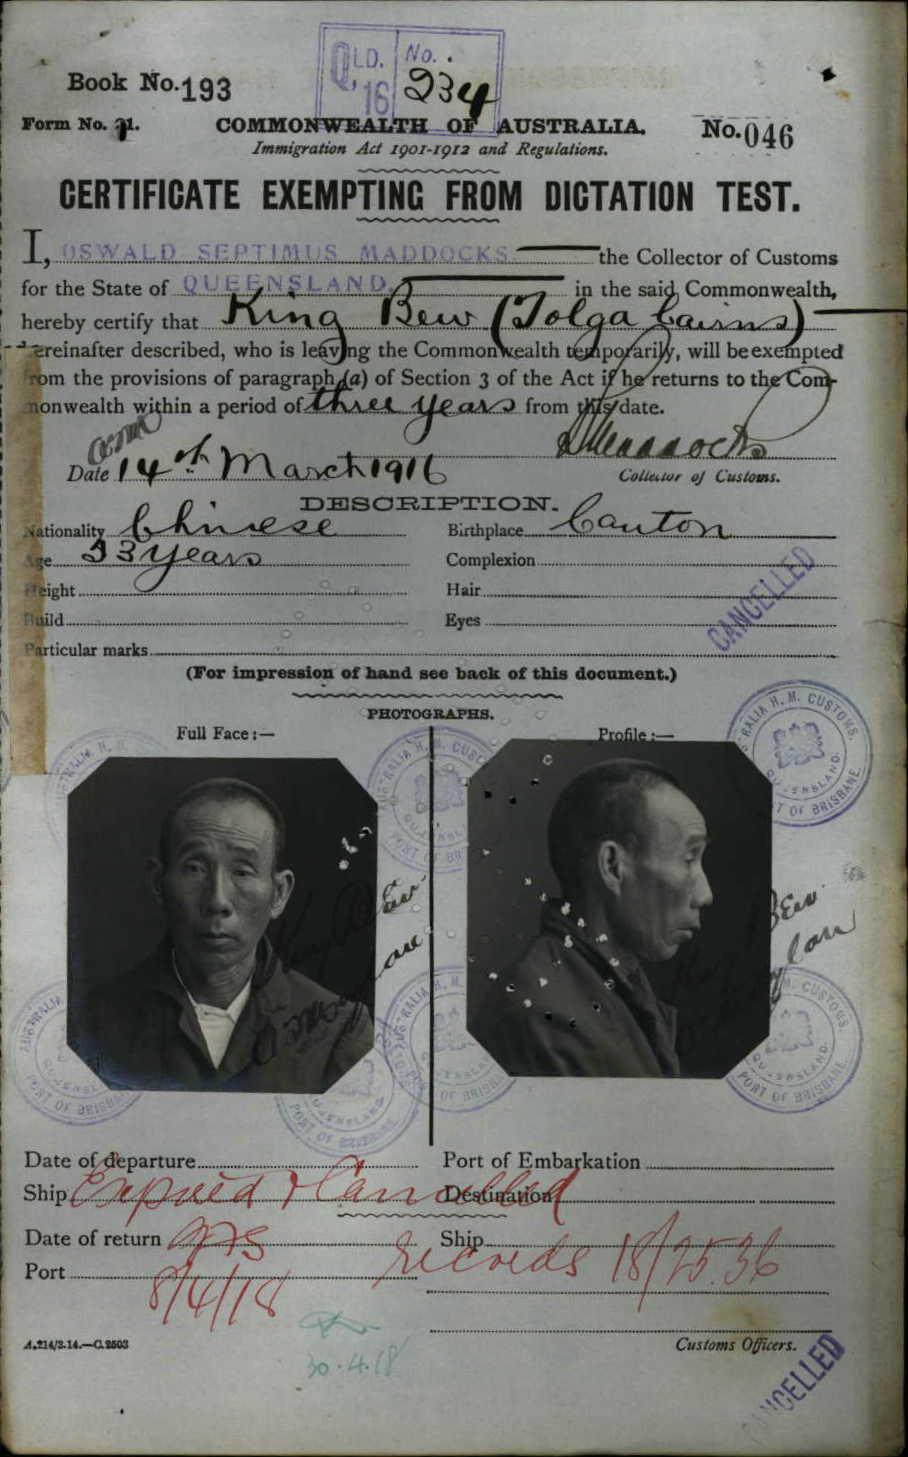 QLD. No.
'16 234
Book No. 193
Form No. 21.
COMMONWEALTH OF AUSTRALIA.
No. 046
Immigration Act 1901-1912 and Regulations.
CERTIFICATE EXEMPTING FROM DICTATION TEST.
I, OSWALD SEPTIMUS MADDOCKS the Collector of Customs
for the State of QUEENSLAND. in the said Commonwealth,
hereby certify that King Bew (Tolga Cairns)
ereinafter described, who is leaving the Commonwealth temporarily, will be exempted
rom the provisions of paragraph (a) of Section 3 of the Act if he returns to the Com-
monwealth within a period of three years from this date.
Date 14th March 1916
OSMaddocks
Collector of Customs.
DESCRIPTION.
Nationality Chinese Birthplace Canton
Age 53 years Complexion
Height Hair
Build Eyes
Particular marks
CANCELLED
(For impression of hand see back of this document.)
PHOTOGRAPHS.
Full Face:— Profile:—
AUSTRALIA H. M. CUSTOMS. QUEENSLAND. PORT OF BRISBANE
King Bew
Bew
Date of departure Port of Embarkation
Ship Expired & Cancelled Destination
Date of return Ship
records 18/2536
Port
8/4/18
30.4.18
A.214/3.14.—C.2503
Customs Officers.
CANCELLED